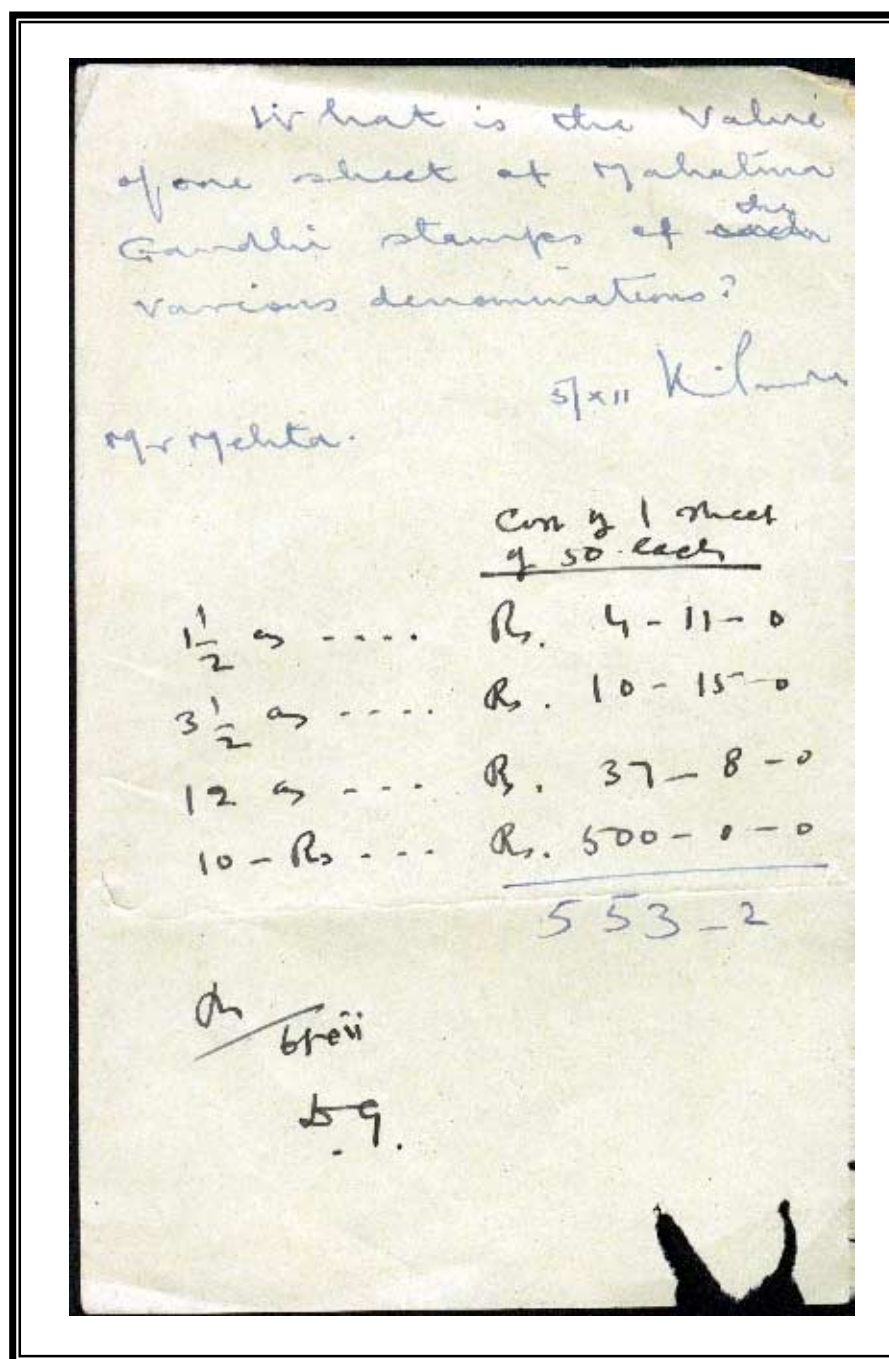 What is the Value
of one sheet of Mahatma
the
Gandhi stamps of
various denominations?
5/XII
Mr Mehta.
Cost of 1 sheet
of 50 each
1 1/2 as .... Rs. 4-11-0
3 1/2 as .... Rs. 10-15-0
12 as --- Rs. 37-8-0
10-Rs --- Rs. 500-0-0
553-2
D.G.